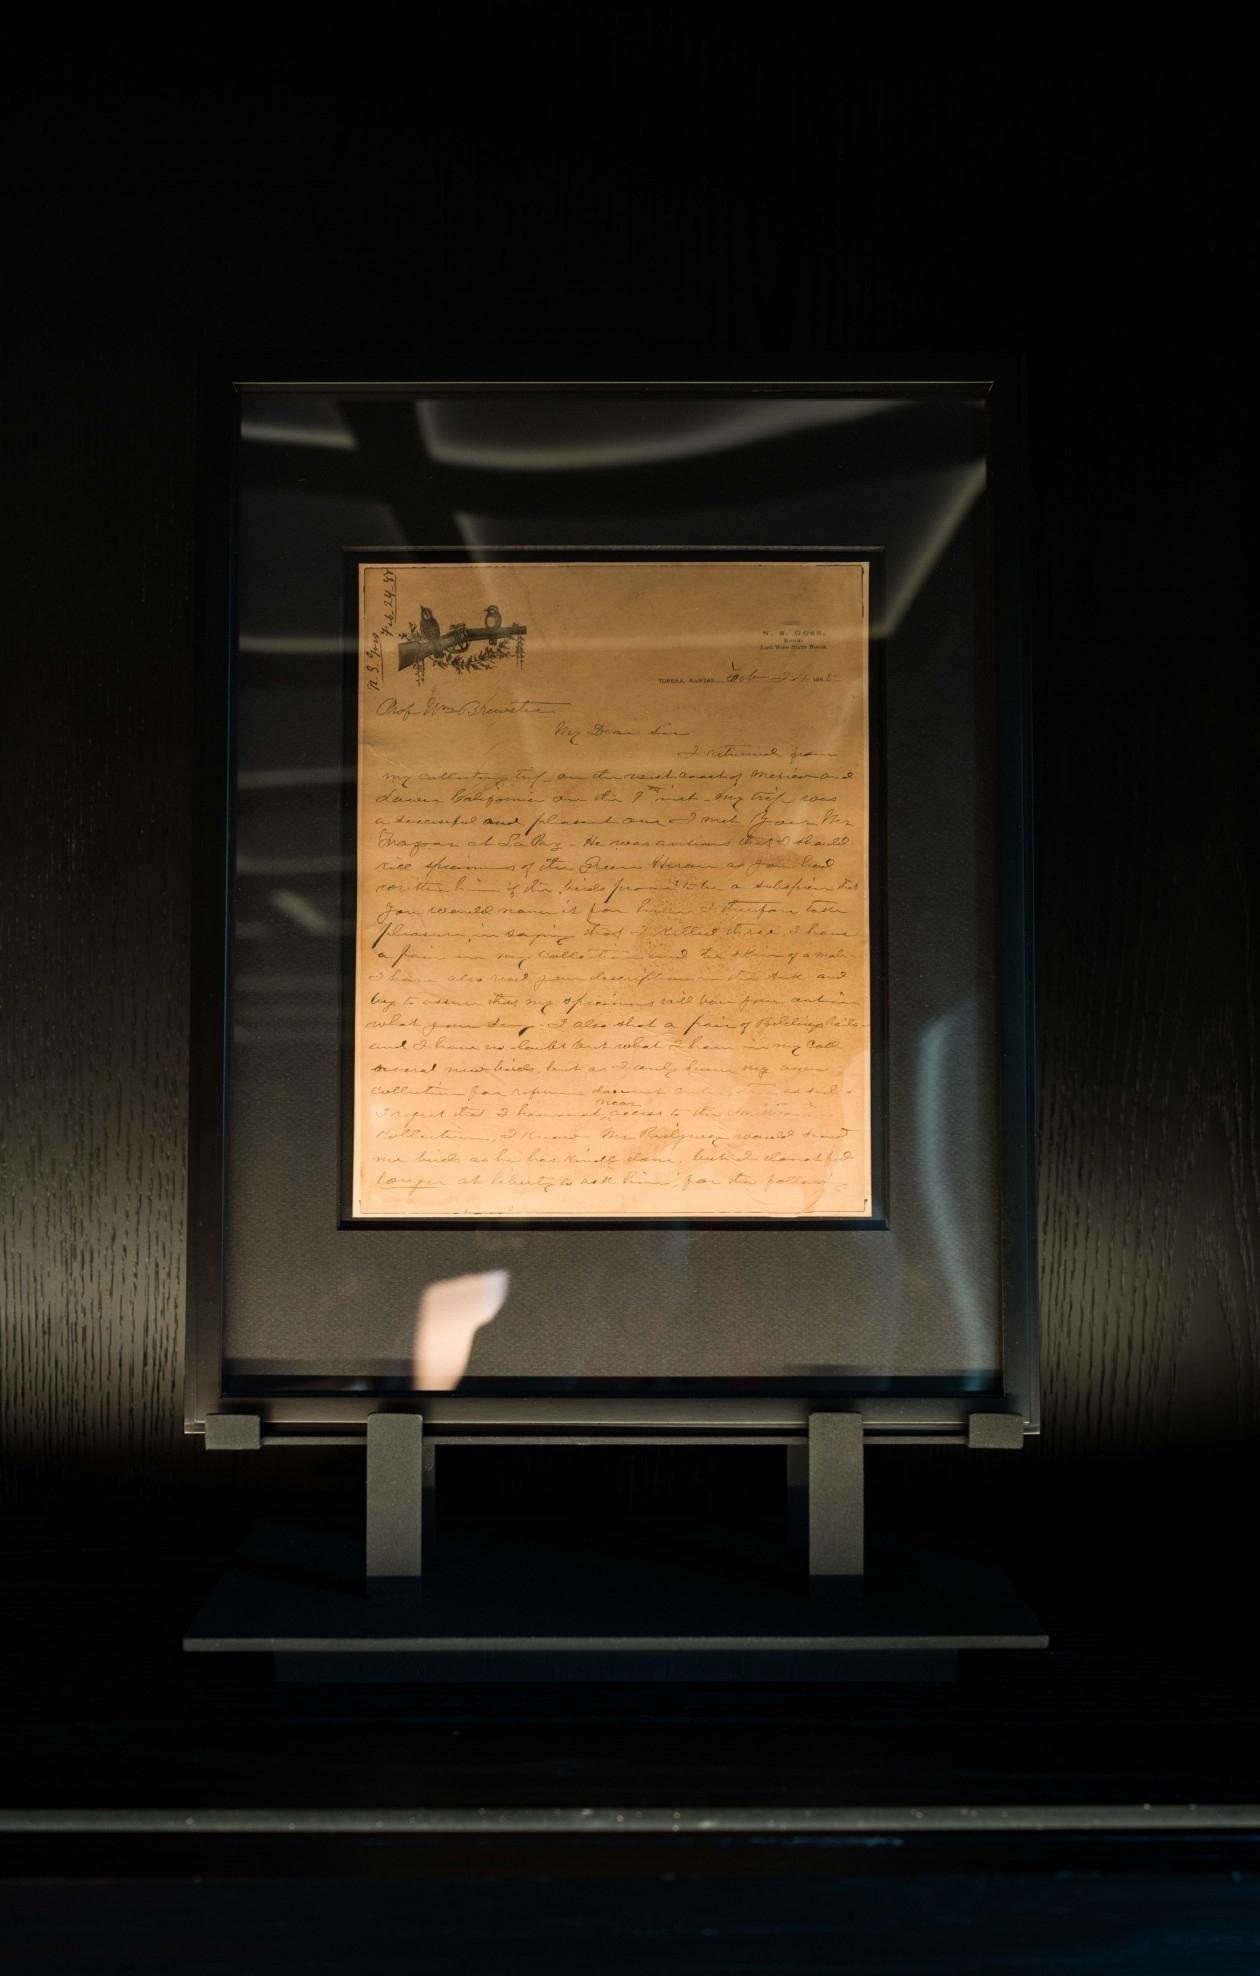 N. S. Goss
Feb. 24-88
N. S. GOSS,
ROOMS
EAST WING STATE HOUSE.
TOPEKA, KANSAS, Feb 24 188
Prof Wm Brewster
My Dear Sir
I returned from
my collecting trip on the west coast of Mexico and
Lower California on the 9th inst - my trip was
a successful and pleasant one - I met your Mr
at La Paz - He was anxious that I should
specimens of the Green Heron as you had
written him if the birds proved to be a subspecies that
you would name it for him I therefore take
pleasure in saying that I killed three, I have
a pair in my collection and the skin of a male.
I have also read your description in the Auk and
beg to assure that my specimens will bear you out in
what you say. I also shot a pair of Beldings Rails
and I have no doubt but what I have in my Coll
several new birds, but as I only have my own
collection for
I regret that I have not near access to the
collection, I know Mr Ridgway would send
me birds as he has kindly done, but I do not feel
longer at liberty to ask him, for the following